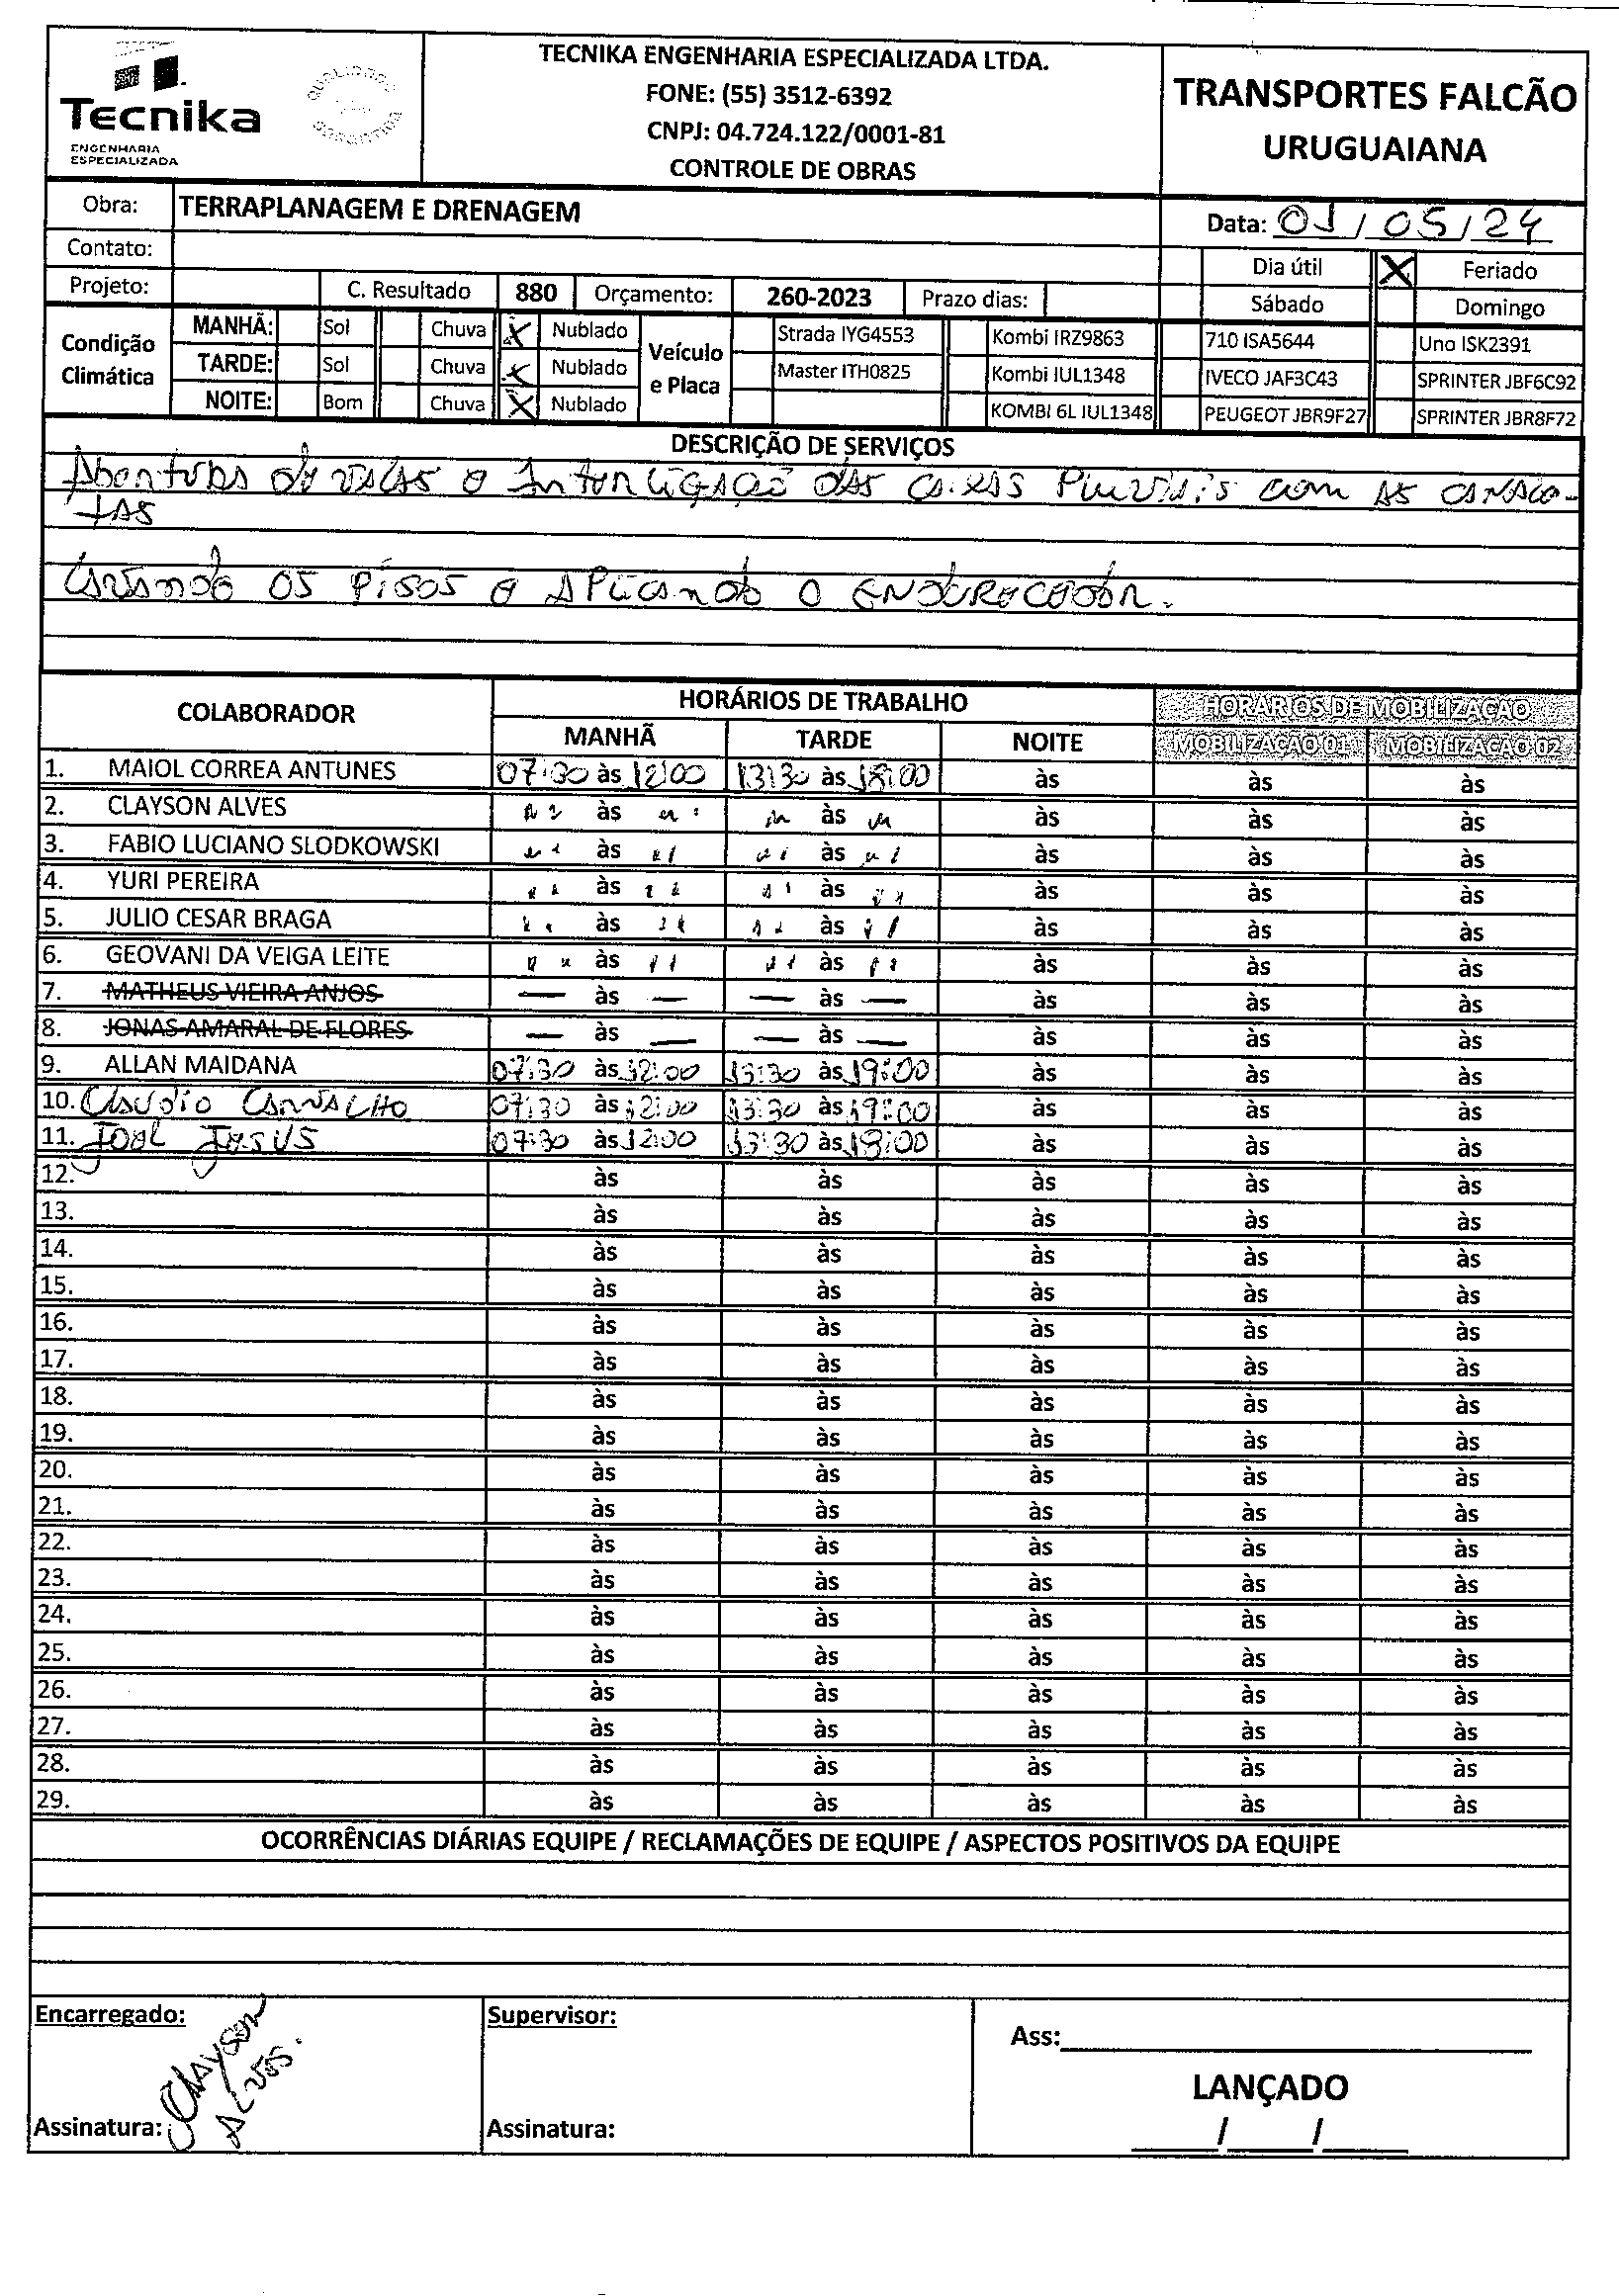 Tecnika
ENGENHARIA
ESPECIALIZADA
TECNIKA ENGENHARIA ESPECIALIZADA LTDA.
FONE: (55) 3512-6392
CNPJ: 04.724.122/0001-81
CONTROLE DE OBRAS
TRANSPORTES FALCÃO
URUGUAIANA
Obra: TERRAPLANAGEM E DRENAGEM
Data: 01/05/24
Contato:
Dia útil X Feriado
Projeto: C. Resultado 880 Orçamento: 260-2023 Prazo dias:
Sábado Domingo
Condição Climática
MANHÃ: Sol Chuva X Nublado
TARDE: Sol Chuva X Nublado
NOITE: Bom Chuva X Nublado
Veículo e Placa
Strada IYG4553 Kombi IRZ9863 710 ISA5644 Uno ISK2391
Master ITH0825 Kombi IUL1348 IVECO JAF3C43 SPRINTER JBF6C92
KOMBI 6L IUL1348 PEUGEOT JBR9F27 SPRINTER JBR8F72
DESCRIÇÃO DE SERVIÇOS
Aberturas de valas e Interligação das caixas Pluviais com as canale-
tas
Curando os pisos e aplicando o endurecedor.
COLABORADOR HORÁRIOS DE TRABALHO HORÁRIOS DE MOBILIZAÇÃO
MANHÃ TARDE NOITE MOBILIZAÇÃO 01 MOBILIZAÇÃO 02
1. MAIOL CORREA ANTUNES 07:30 às 12:00 13:30 às 18:00 às às às
2. CLAYSON ALVES " às " " às " às às às
3. FABIO LUCIANO SLODKOWSKI " às " " às " às às às
4. YURI PEREIRA " às " " às " às às às
5. JULIO CESAR BRAGA " às " " às " às às às
6. GEOVANI DA VEIGA LEITE " às " " às " às às às
7. MATHEUS VIEIRA ANJOS — às — — às — às às às
8. JONAS AMARAL DE FLORES — às — — às — às às às
9. ALLAN MAIDANA 07:30 às 12:00 13:30 às 19:00 às às às
10. Claudio Carvalho 07:30 às 12:00 13:30 às 19:00 às às às
11. Joel Jesus 07:30 às 12:00 13:30 às às às às
12. às às às às às
13. às às às às às
14. às às às às às
15. às às às às às
16. às às às às às
17. às às às às às
18. às às às às às
19. às às às às às
20. às às às às às
21. às às às às às
22. às às às às às
23. às às às às às
24. às às às às às
25. às às às às às
26. às às às às às
27. às às às às às
28. às às às às às
29. às às às às às
OCORRÊNCIAS DIÁRIAS EQUIPE / RECLAMAÇÕES DE EQUIPE / ASPECTOS POSITIVOS DA EQUIPE
Encarregado:
Assinatura: Clayson Alves.
Supervisor:
Assinatura:
Ass:
LANÇADO
/ /